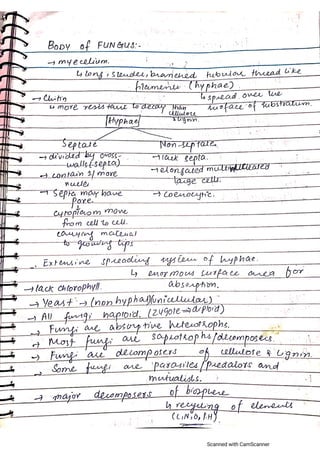 BODY OF FUNGUS:-
→ mycelium.
↳ long, slender, branched tubular thread like
filaments (hyphae)
→ Chitin
↳ spread over the
↳ more resistant to decay than cellulose & lignin.
surface of substratum.
Hyphae
Septate
Non-septate.
→ divided by cross-
walls (septa)
→ lack septa.
→ contain 1/ more
nuclei
→ elongated multinucleated
large cells.
→ Septa may have
pore.
→ coenocytic.
↓
cytoplasm move
from cell to cell.
carrying material
to growing tips
Extensive spreading system of hyphae.
↳ enormous surface area for
absorption.
→ lack chlorophyll.
→ Yeast → (non hyphal/unicellular)
→ All fungi haploid. (zygote → diploid)
→ Fungi are absorptive heterotrophs.
→ Most fungi are saprotrophs/decomposers.
→ Fungi are decomposers of cellulose & lignin.
→ Some fungi are parasites/predators and
mutualists.
→ major decomposers of biosphere
↳ recycling of elements
(C,N,O,P,H)
Scanned with CamScanner